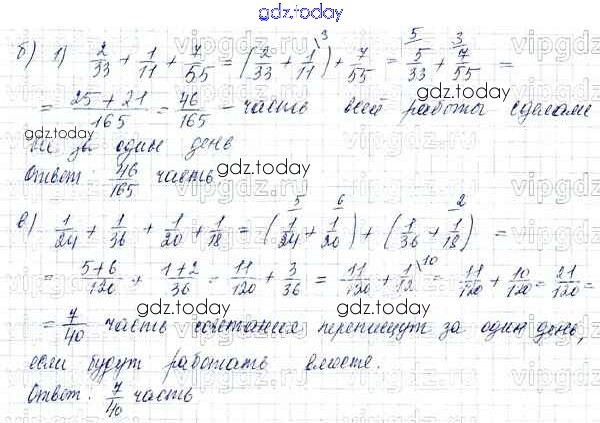 gdz.today
б) 1) 2/33 + 1/11 + 7/55 = (2/33 + 1/11 \3) + 7/55 = 5/33 \5 + 7/55 \3 =
= (25 + 21)/165 = 46/165 - часть всей работы сделали
gdz.today
за один день
gdz.today
Ответ: 46/165 часть
в) 1/24 + 1/36 + 1/20 + 1/18 = (1/24 \5 + 1/20 \6) + (1/36 + 1/18 \2) =
= (5+6)/120 + (1+2)/36 = 11/120 + 3/36 = 11/120 + 1/12 \10 = 11/120 + 10/120 = 21/120 =
gdz.today
gdz.today
= 7/40 часть сочетания перепишут за один день,
если будут работать вместе.
Ответ: 7/40 часть
gdz.today